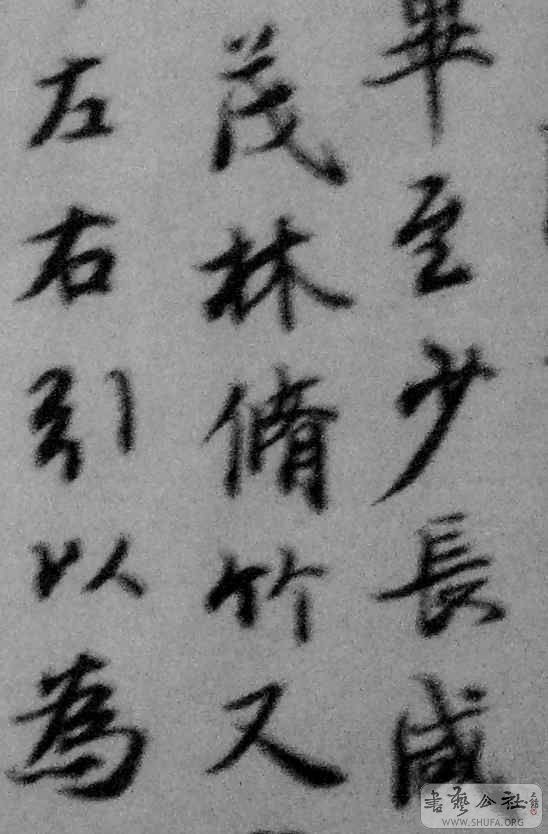 畢至少長咸
茂林脩竹又
左右引以為
書藝公社
WWW.SHUFA.ORG